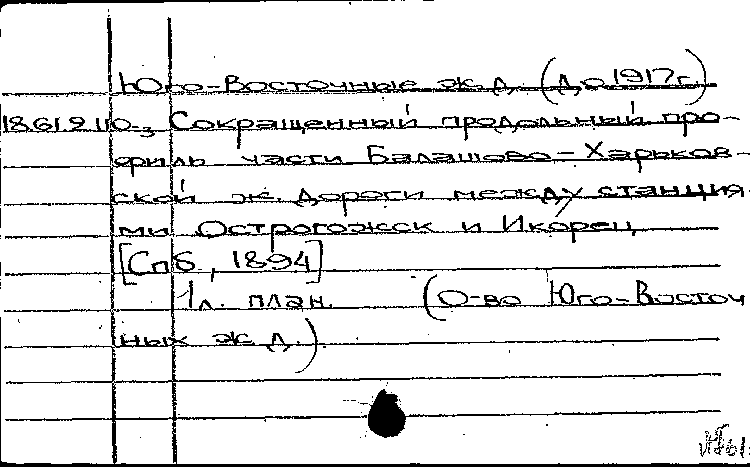 Юго-Восточные ж.д. (до 1917г.)
18.61.9.110-3 Сокращенный продольный про-
филь части Балашово-Харьков-
ской ж. дороги между станция-
ми Острогожск и Икорец
[Спб, 1894]
1л. план. (О-во Юго-Восточ
ных ж.д.).